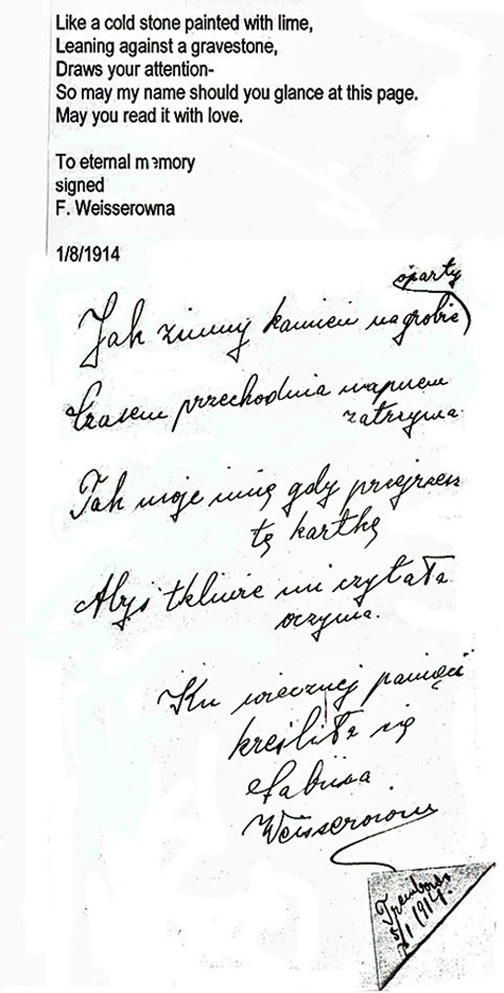 Like a cold stone painted with lime,
Leaning against a gravestone,
Draws your attention-
So may my name should you glance at this page.
May you read it with love.
To eternal memory
signed
F. Weisserowna
1/8/1914
oparty
Jak zimny kamień na grobie
Czasem przechodnia wapnem
zatrzyma
Tak moje imię gdy przejrzesz
tę kartkę
Abyś tkliwie mi czytała
oczyma.
Ku wiecznej pamięci
kreśliła się
Weisserowna
1914